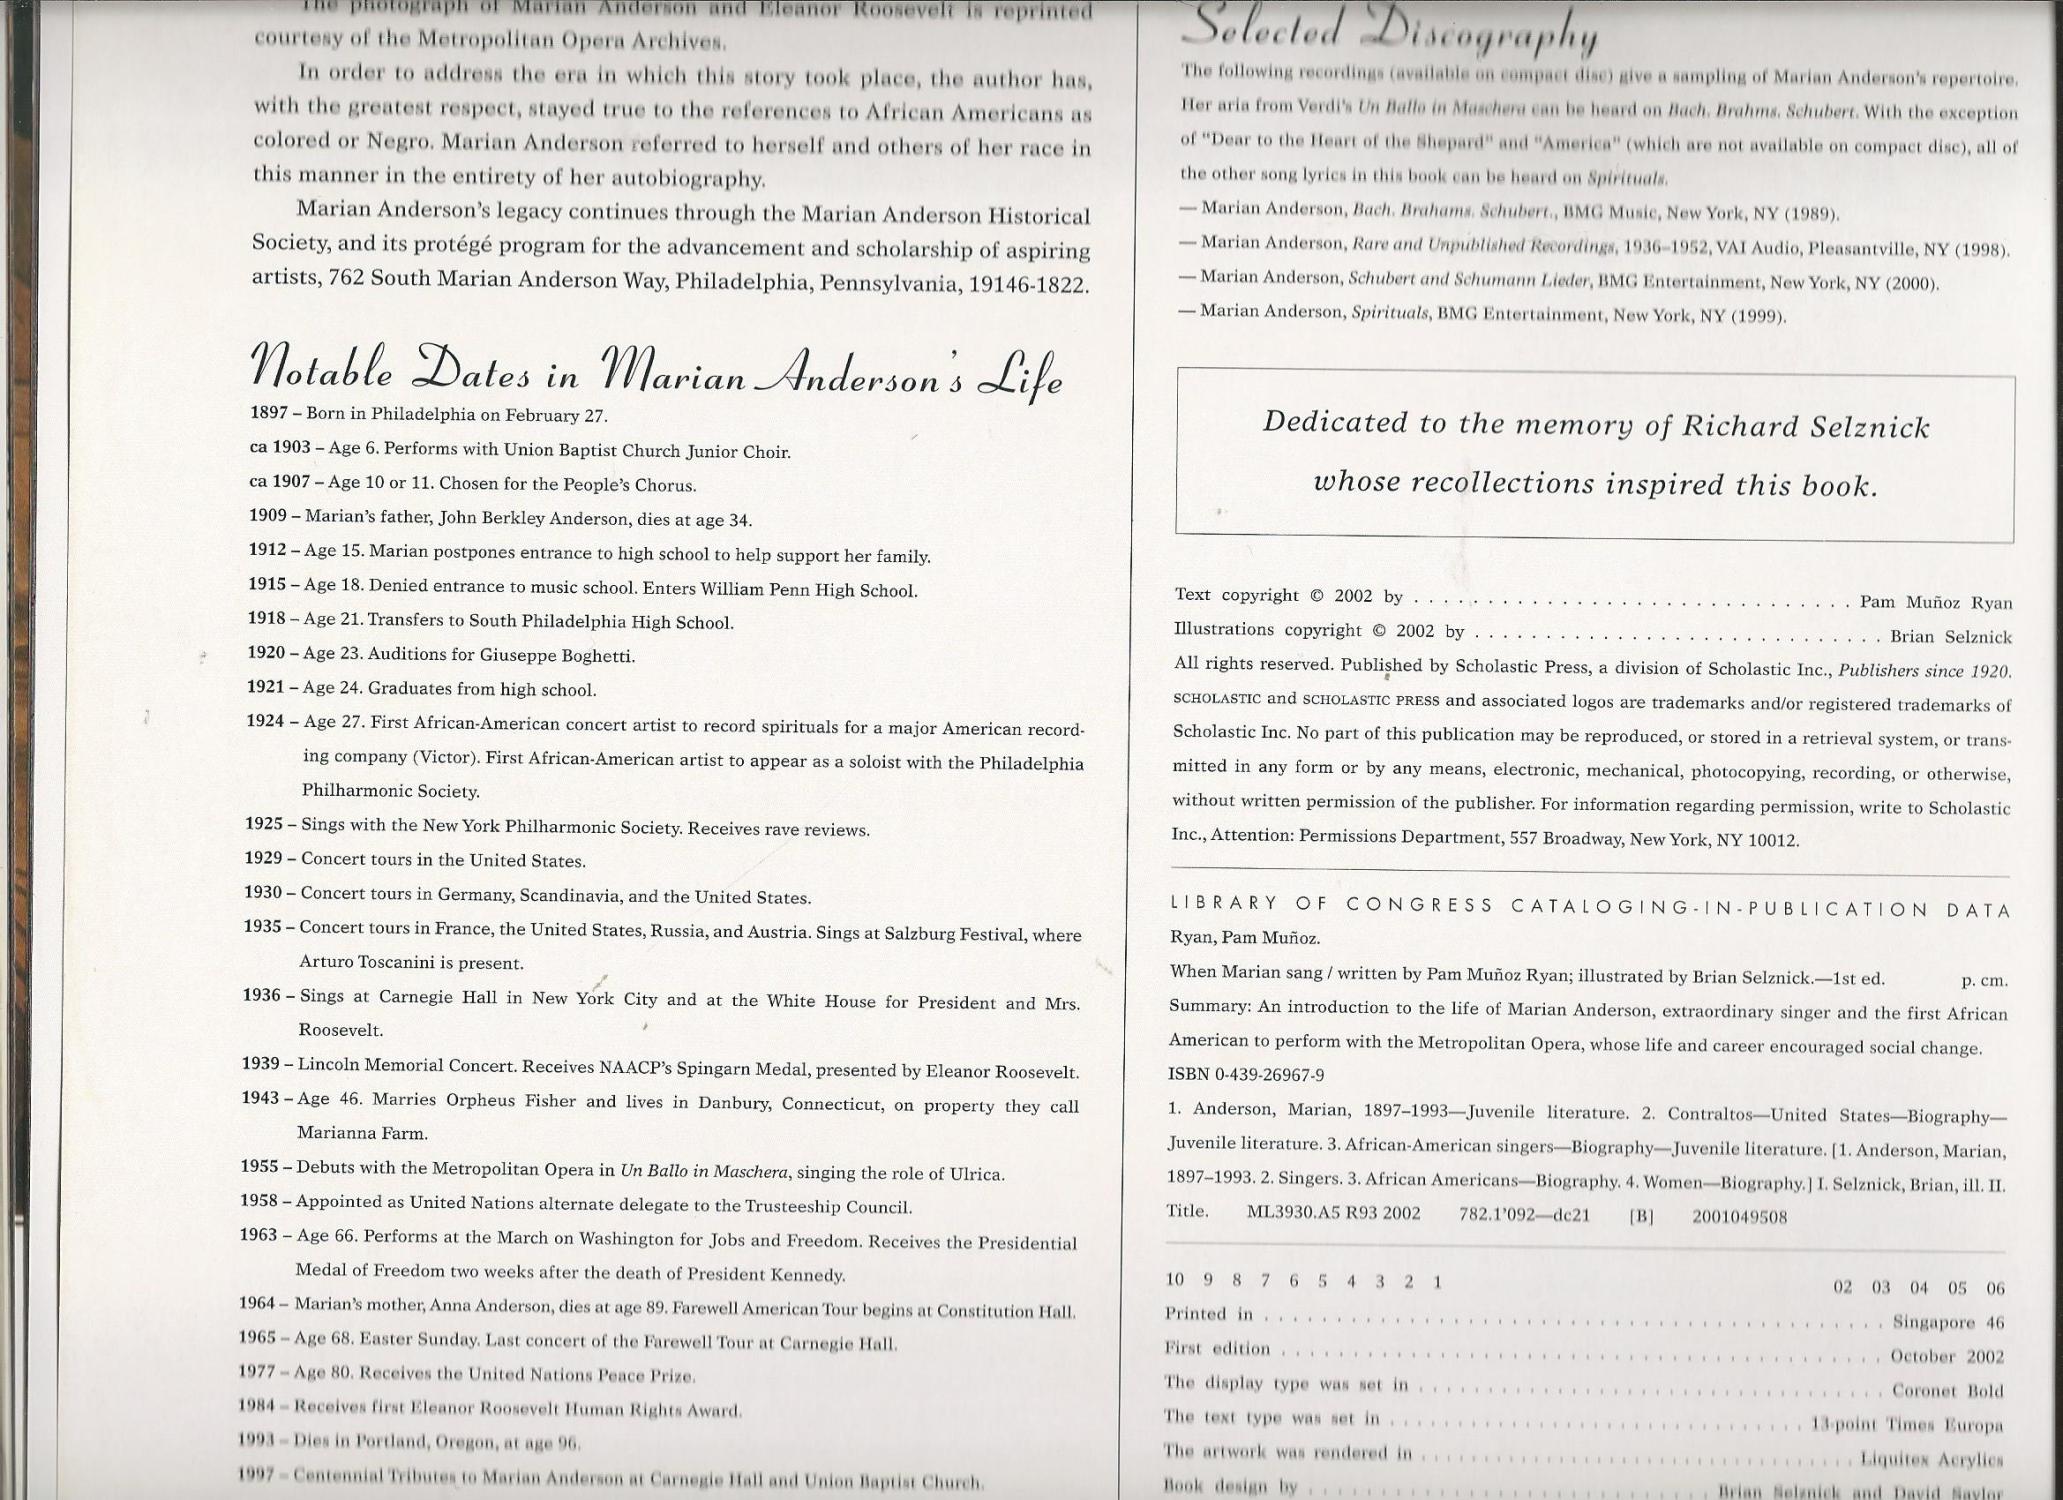 The photograph of Marian Anderson and Eleanor Roosevelt is reprinted
courtesy of the Metropolitan Opera Archives.
In order to address the era in which this story took place, the author has,
with the greatest respect, stayed true to the references to African Americans as
colored or Negro. Marian Anderson referred to herself and others of her race in
this manner in the entirety of her autobiography.
Marian Anderson's legacy continues through the Marian Anderson Historical
Society, and its protégé program for the advancement and scholarship of aspiring
artists, 762 South Marian Anderson Way, Philadelphia, Pennsylvania, 19146-1822.
Notable Dates in Marian Anderson's Life
1897 – Born in Philadelphia on February 27.
ca 1903 – Age 6. Performs with Union Baptist Church Junior Choir.
ca 1907 – Age 10 or 11. Chosen for the People's Chorus.
1909 – Marian's father, John Berkley Anderson, dies at age 34.
1912 – Age 15. Marian postpones entrance to high school to help support her family.
1915 – Age 18. Denied entrance to music school. Enters William Penn High School.
1918 – Age 21. Transfers to South Philadelphia High School.
1920 – Age 23. Auditions for Giuseppe Boghetti.
1921 – Age 24. Graduates from high school.
1924 – Age 27. First African-American concert artist to record spirituals for a major American record-
ing company (Victor). First African-American artist to appear as a soloist with the Philadelphia
Philharmonic Society.
1925 – Sings with the New York Philharmonic Society. Receives rave reviews.
1929 – Concert tours in the United States.
1930 – Concert tours in Germany, Scandinavia, and the United States.
1935 – Concert tours in France, the United States, Russia, and Austria. Sings at Salzburg Festival, where
Arturo Toscanini is present.
1936 – Sings at Carnegie Hall in New York City and at the White House for President and Mrs.
Roosevelt.
1939 – Lincoln Memorial Concert. Receives NAACP's Spingarn Medal, presented by Eleanor Roosevelt.
1943 – Age 46. Marries Orpheus Fisher and lives in Danbury, Connecticut, on property they call
Marianna Farm.
1955 – Debuts with the Metropolitan Opera in Un Ballo in Maschera, singing the role of Ulrica.
1958 – Appointed as United Nations alternate delegate to the Trusteeship Council.
1963 – Age 66. Performs at the March on Washington for Jobs and Freedom. Receives the Presidential
Medal of Freedom two weeks after the death of President Kennedy.
1964 – Marian's mother, Anna Anderson, dies at age 89. Farewell American Tour begins at Constitution Hall.
1965 – Age 68. Easter Sunday. Last concert of the Farewell Tour at Carnegie Hall.
1977 – Age 80. Receives the United Nations Peace Prize.
1984 – Receives first Eleanor Roosevelt Human Rights Award.
1993 – Dies in Portland, Oregon, at age 96.
1997 – Centennial Tributes to Marian Anderson at Carnegie Hall and Union Baptist Church.
Selected Discography
The following recordings (available on compact disc) give a sampling of Marian Anderson's repertoire.
Her aria from Verdi's Un Ballo in Maschera can be heard on Bach. Brahms. Schubert. With the exception
of "Dear to the Heart of the Shepard" and "America" (which are not available on compact disc), all of
the other song lyrics in this book can be heard on Spirituals.
— Marian Anderson, Bach. Brahams. Schubert., BMG Music, New York, NY (1989).
— Marian Anderson, Rare and Unpublished Recordings, 1936–1952, VAI Audio, Pleasantville, NY (1998).
— Marian Anderson, Schubert and Schumann Lieder, BMG Entertainment, New York, NY (2000).
— Marian Anderson, Spirituals, BMG Entertainment, New York, NY (1999).
Dedicated to the memory of Richard Selznick
whose recollections inspired this book.
Text copyright © 2002 by . . . . . . . . . . . . . . . . . . . . . . . . . . . . . . Pam Muñoz Ryan
Illustrations copyright © 2002 by . . . . . . . . . . . . . . . . . . . . . . . . . . . . Brian Selznick
All rights reserved. Published by Scholastic Press, a division of Scholastic Inc., Publishers since 1920.
SCHOLASTIC and SCHOLASTIC PRESS and associated logos are trademarks and/or registered trademarks of
Scholastic Inc. No part of this publication may be reproduced, or stored in a retrieval system, or trans-
mitted in any form or by any means, electronic, mechanical, photocopying, recording, or otherwise,
without written permission of the publisher. For information regarding permission, write to Scholastic
Inc., Attention: Permissions Department, 557 Broadway, New York, NY 10012.
LIBRARY OF CONGRESS CATALOGING-IN-PUBLICATION DATA
Ryan, Pam Muñoz.
When Marian sang / written by Pam Muñoz Ryan; illustrated by Brian Selznick.—1st ed. p. cm.
Summary: An introduction to the life of Marian Anderson, extraordinary singer and the first African
American to perform with the Metropolitan Opera, whose life and career encouraged social change.
ISBN 0-439-26967-9
1. Anderson, Marian, 1897–1993—Juvenile literature. 2. Contraltos—United States—Biography—
Juvenile literature. 3. African-American singers—Biography—Juvenile literature. [1. Anderson, Marian,
1897–1993. 2. Singers. 3. African Americans—Biography. 4. Women—Biography.] I. Selznick, Brian, ill. II.
Title. ML3930.A5 R93 2002 782.1'092—dc21 [B] 2001049508
10 9 8 7 6 5 4 3 2 1 02 03 04 05 06
Printed in . . . . . . . . . . . . . . . . . . . . . . . . . . . . . . . . . . . . . . . . Singapore 46
First edition . . . . . . . . . . . . . . . . . . . . . . . . . . . . . . . . . . . . . . October 2002
The display type was set in . . . . . . . . . . . . . . . . . . . . . . . . . . . . . . Coronet Bold
The text type was set in . . . . . . . . . . . . . . . . . . . . . . . . . . . . 13-point Times Europa
The artwork was rendered in . . . . . . . . . . . . . . . . . . . . . . . . . . . . Liquitex Acrylics
Book design by . . . . . . . . . . . . . . . . . . . . . . . . . . Brian Selznick and David Saylor